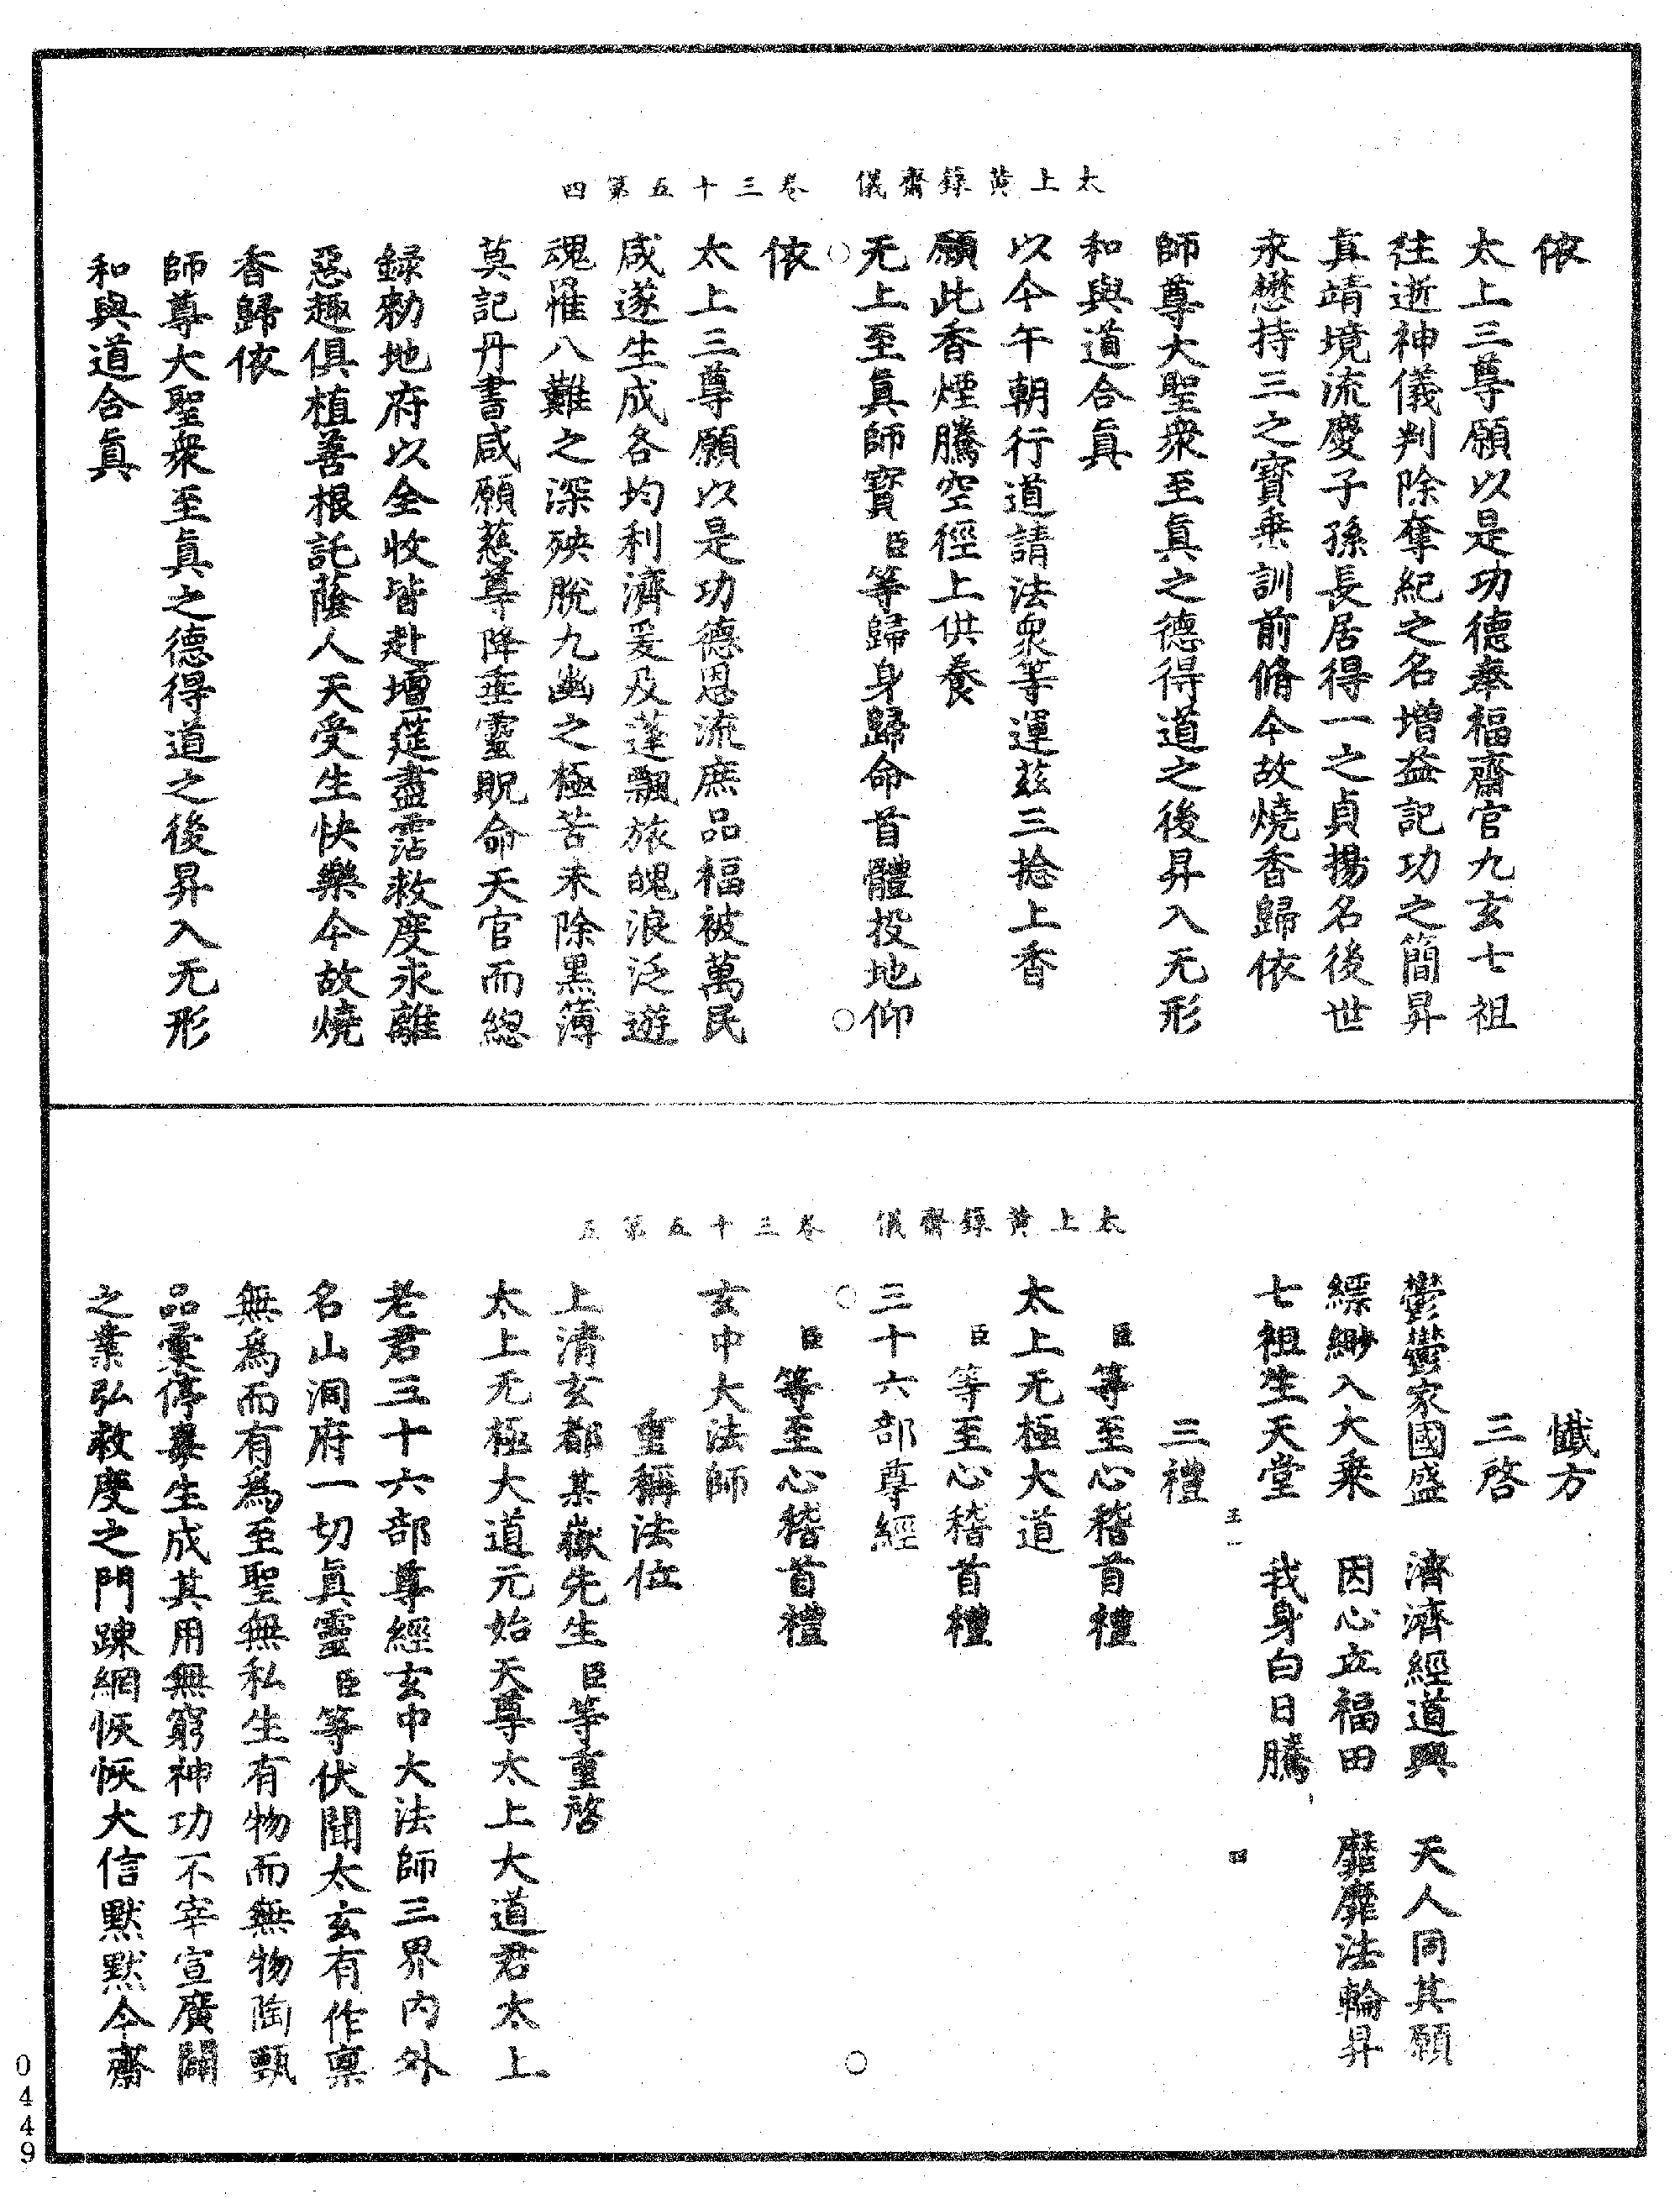 太上黃籙齋儀　卷三十五第四
依
太上三尊願以是功德奉福齋官九玄七祖
往逝神儀判除奪紀之名增益記功之簡昇
真靖境流慶子孫長居得一之貞揚名後世
永懋持三之寶乗訓前脩今故燒香歸依
師尊大聖衆至真之德得道之後昇入无形
和與道合真
以今午朝行道請法衆等運茲三捻上香
願此香煙騰空徑上供養
无上至真師寶臣等歸身歸命首體投地仰
依
太上三尊願以是功德恩流庶品福被萬民
咸遂生成各均利濟爰及蓬飄旅魄浪泛遊
魂罹八難之深殃脫九幽之極苦未除黑簿
莫記丹書咸願慈尊降垂靈貺命天官而緫
録勑地府以全收皆赴壇筵盡霑救度永離
惡趣俱植善根託蔭人天受生快樂今故燒
香歸依
師尊大聖衆至真之德得道之後昇入无形
和與道合真
太上黃籙齋儀　卷三十五第五
懺方
三啓
鬱鬱家國盛　濟濟經道興　天人同其願
縹緲入大乗　因心立福田　靡靡法輪昇
七祖生天堂　我身白日騰
三禮
臣等至心稽首禮
太上无極大道
臣等至心稽首禮
三十六部尊經
臣等至心稽首禮
玄中大法師
重稱法位
上清玄都某嶽先生臣等重啓
太上无極大道元始天尊太上大道君太上
老君三十六部尊經玄中大法師三界内外
名山洞府一切真靈臣等伏聞太玄有作禀
無為而有為至聖無私生有物而無物陶甄
品彙停毒生成其用無窮神功不宰宣廣闢
之業弘救度之門踈網恢恢大信默默今齋
0449